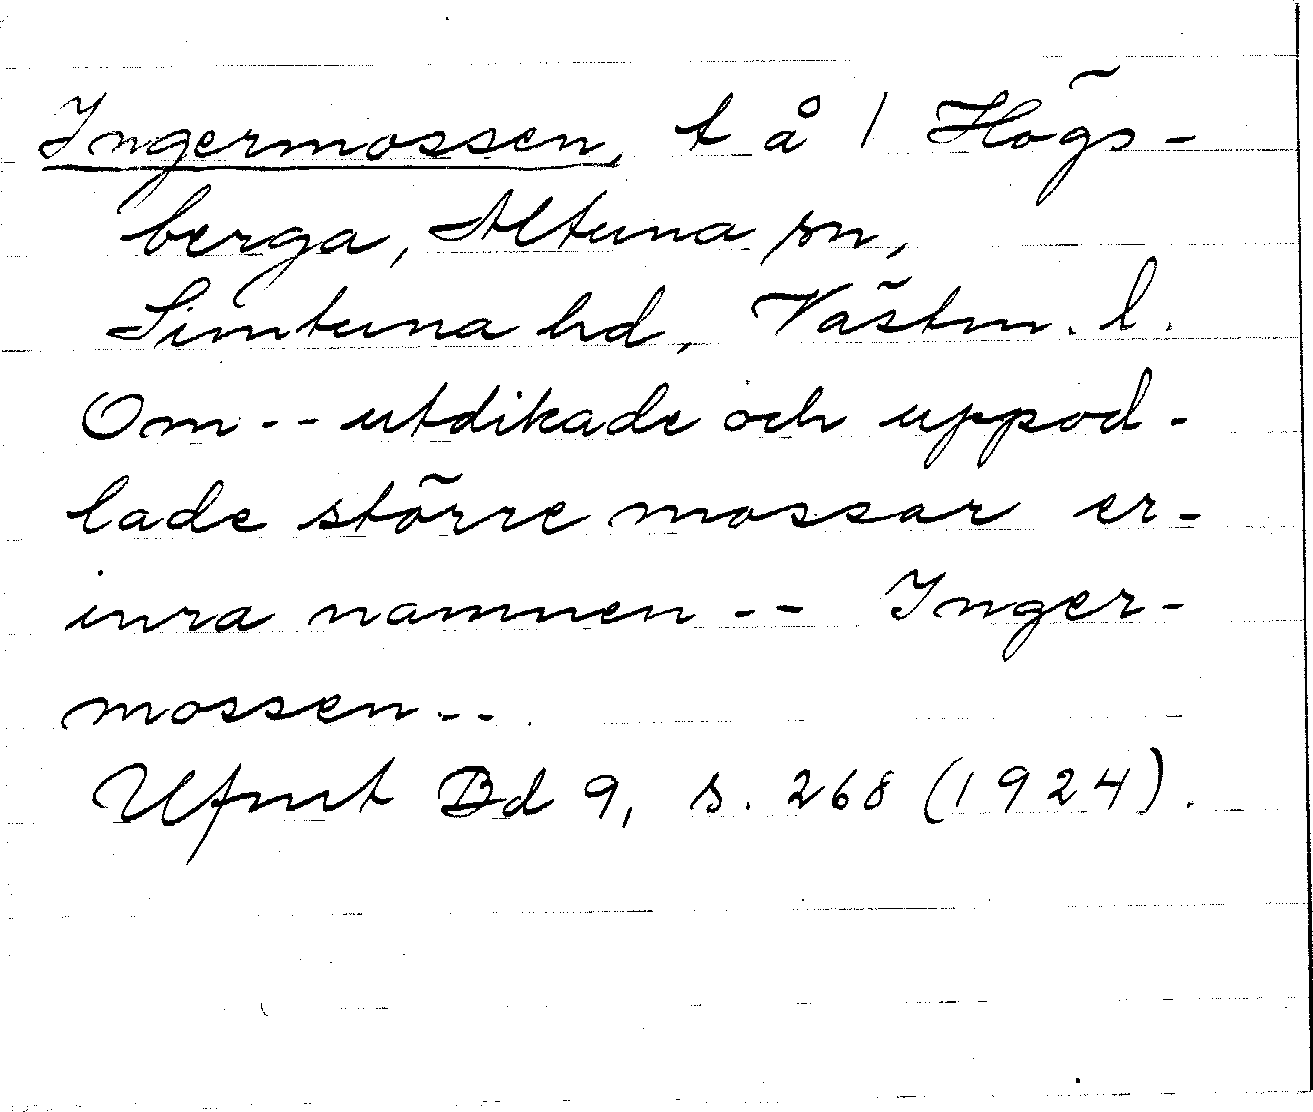 Ingermossen, t å / Högs-
berga, Altuna sn,
Simtuna hd, Västm. l.
Om -- utdikade och uppod-
lade större mossar er-
inra namnen -- Inger-
mossen --
Ufmt Bd 9, s. 268 (1924).